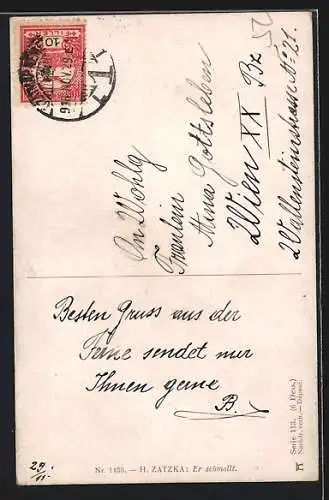 FILLER
10
An Wohlg
Fräulein
Anna Gottsleben
Wien XX Bz
Wallensteinstrasse № 21.
Besten Gruss aus der
Ferne sendet nur
Ihnen gerne
B.
29/11
Nr. 1435. — H. ZATZKA: Er schmollt.
Serie 113. (6 Dess.)